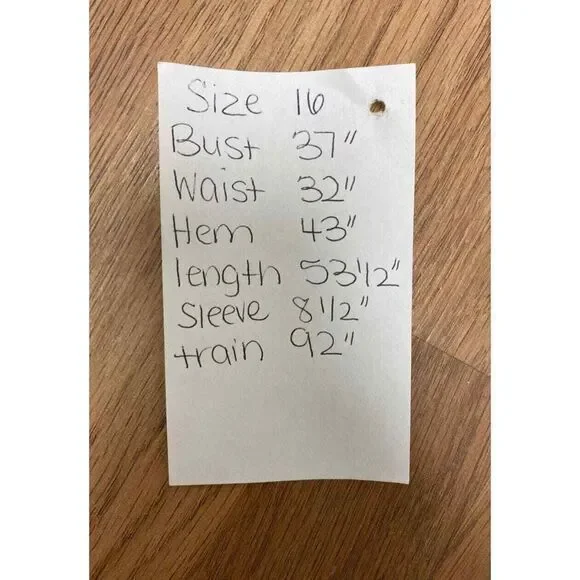 Size 16
Bust 37"
Waist 32"
Hem 43"
length 53 1/2"
Sleeve 8 1/2"
train 92"